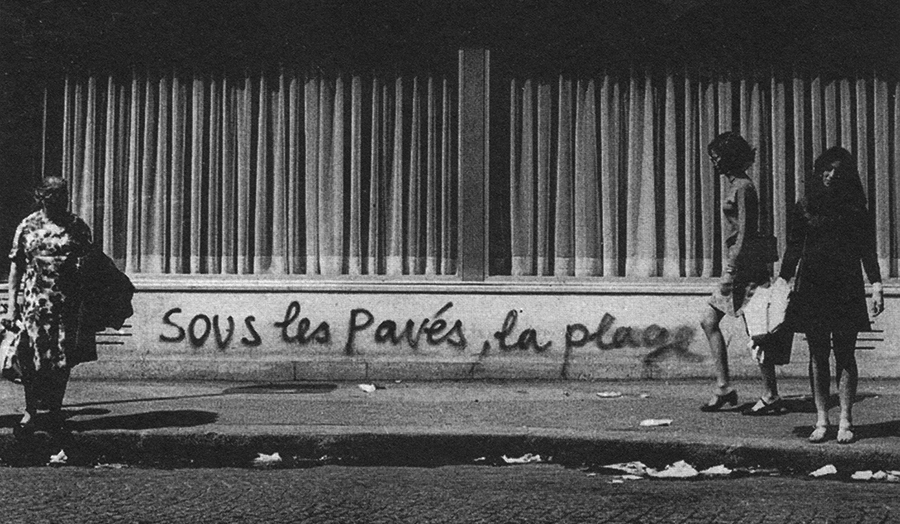 Sous les Pavés, la plage